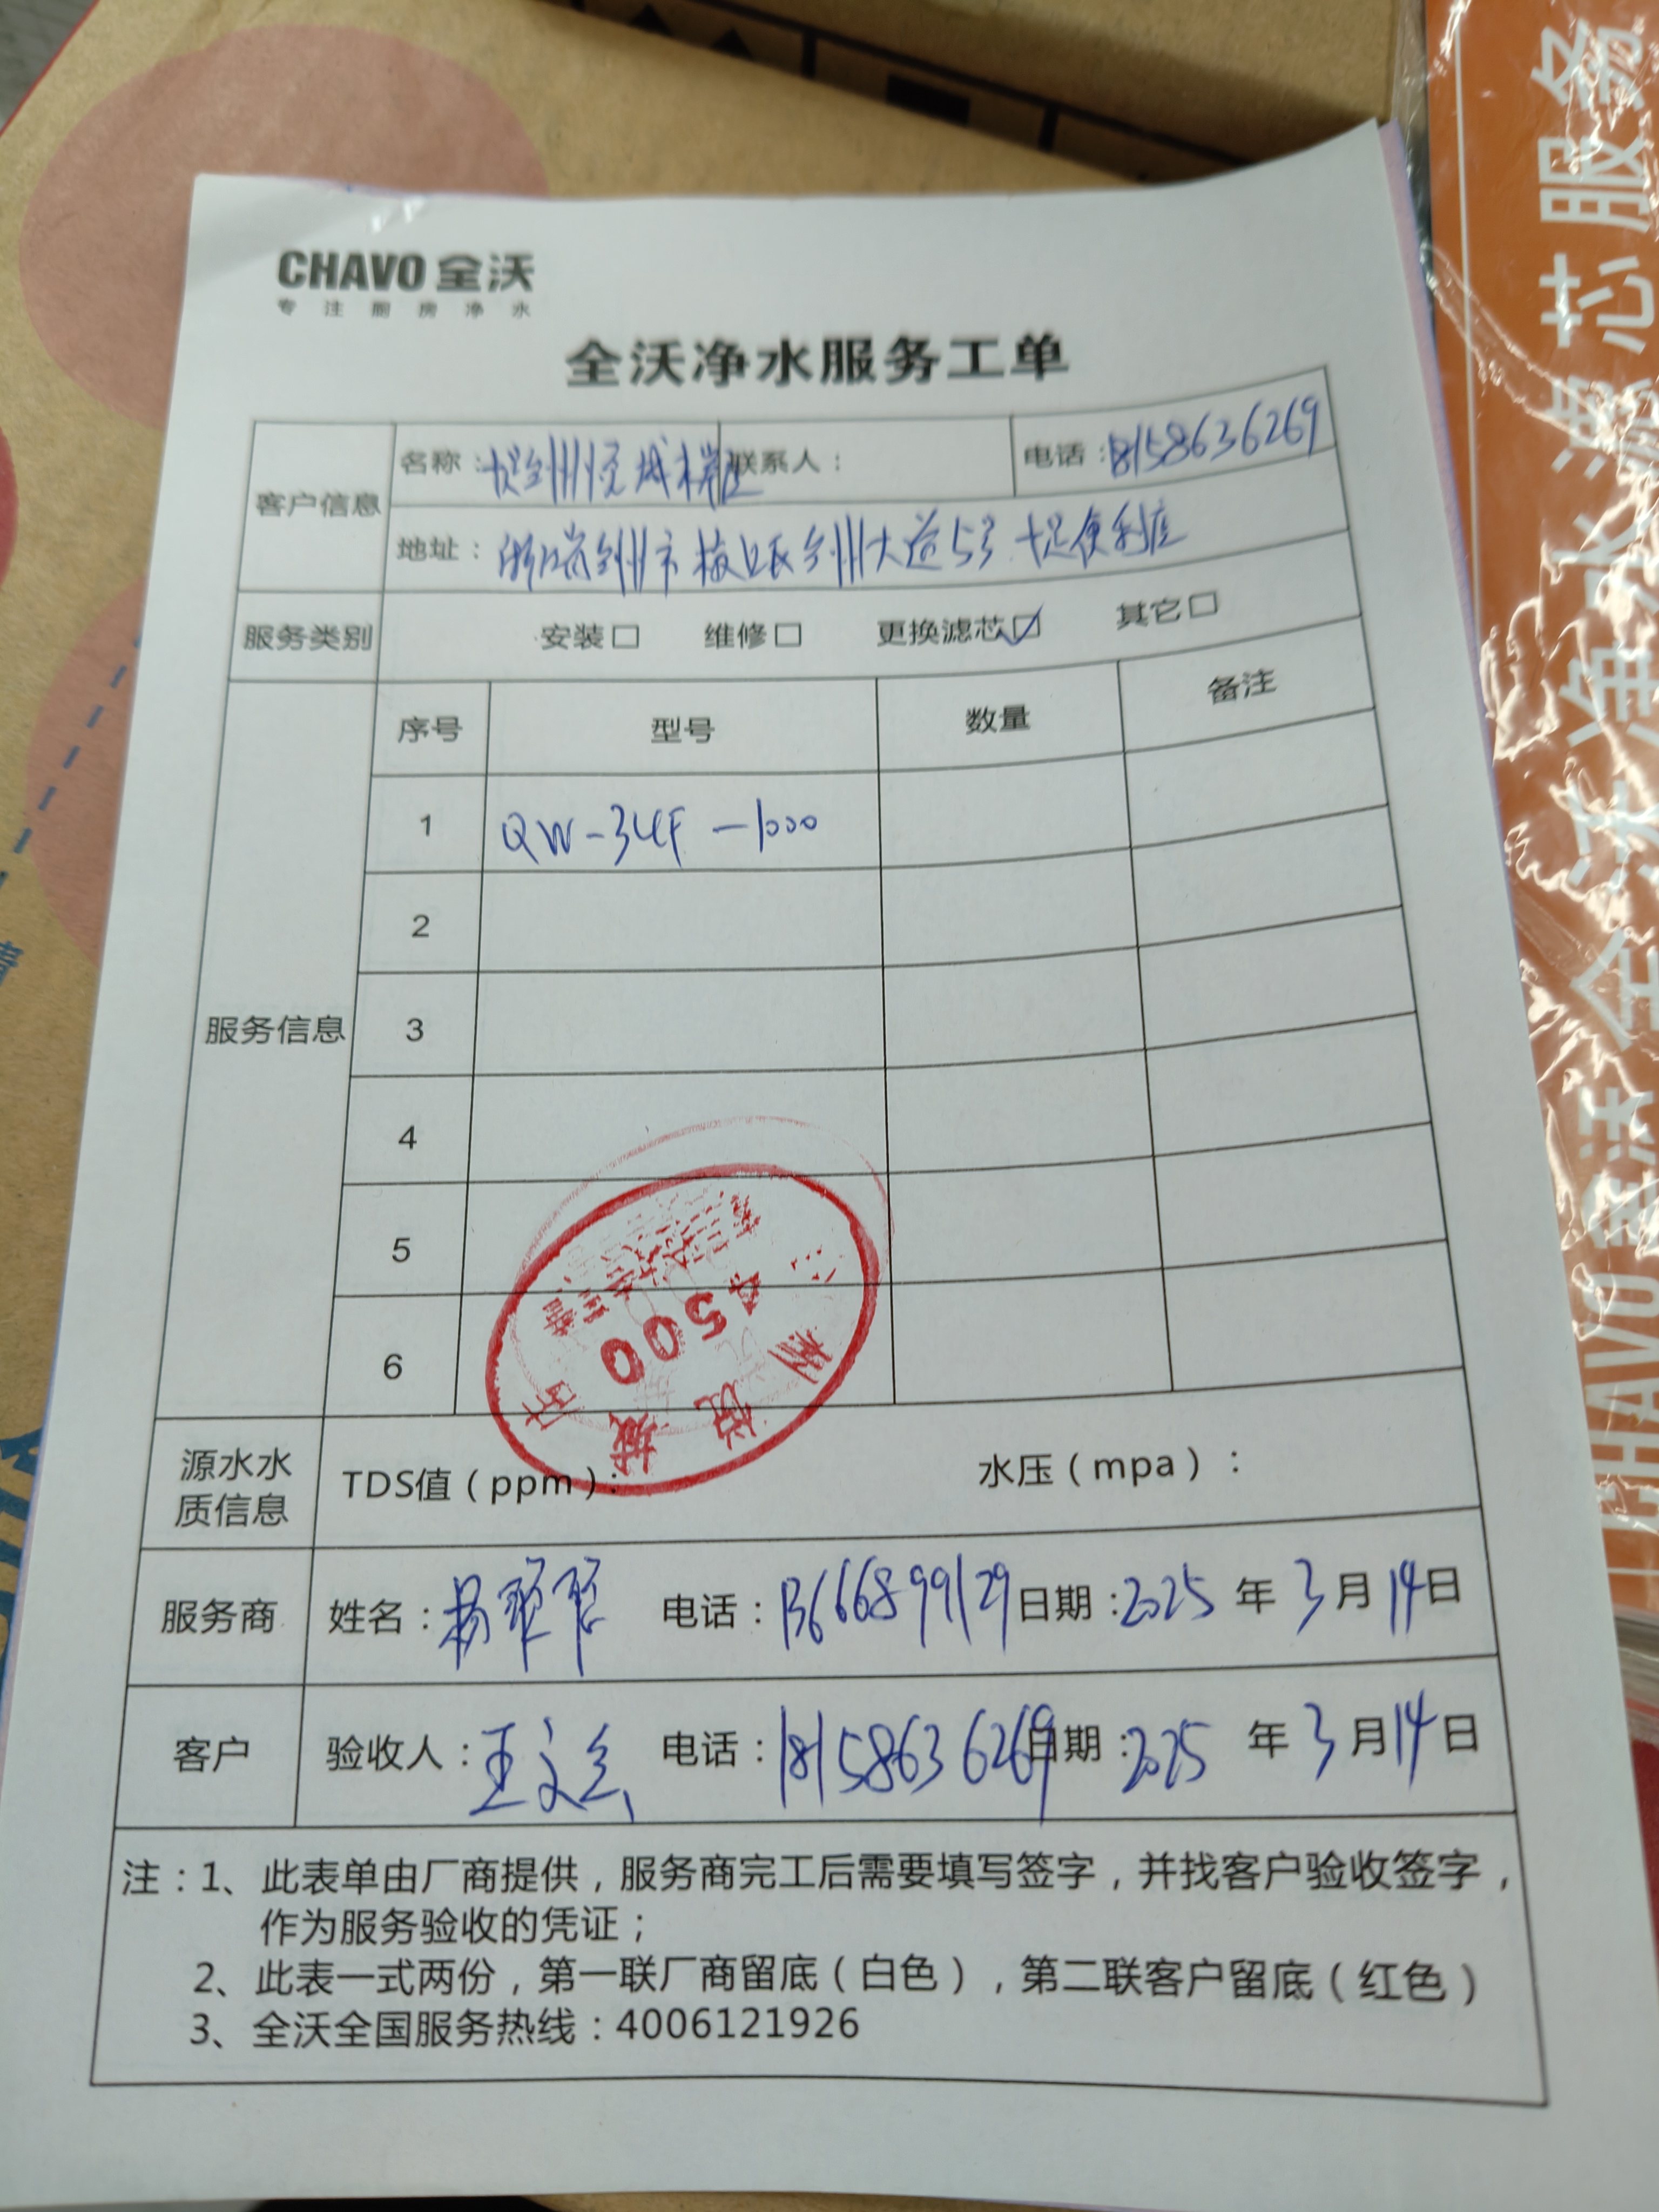 CHAVO 全沃
专注厨房净水
全沃净水服务工单
客户信息
名称：十足台州悦城店
联系人：
电话：18158636269
地址：浙江省台州市椒江区台州大道5号 十足便利店
服务类别
安装□ 维修□ 更换滤芯☑ 其它□
服务信息
序号 型号 数量 备注
1 QW-34F-1000
2
3
4
5
6
4500
州悦城店
源水水质信息
TDS值（ppm）： 水压（mpa）：
服务商 姓名：杨 电话：13666899129 日期：2025 年 3 月 14 日
客户 验收人：王文 电话：18158636269 日期：2025 年 3 月 14 日
注：1、此表单由厂商提供，服务商完工后需要填写签字，并找客户验收签字，
作为服务验收的凭证；
2、此表一式两份，第一联厂商留底（白色），第二联客户留底（红色）
3、全沃全国服务热线：4006121926
CHAVO全沃 全沃净水滤芯服务